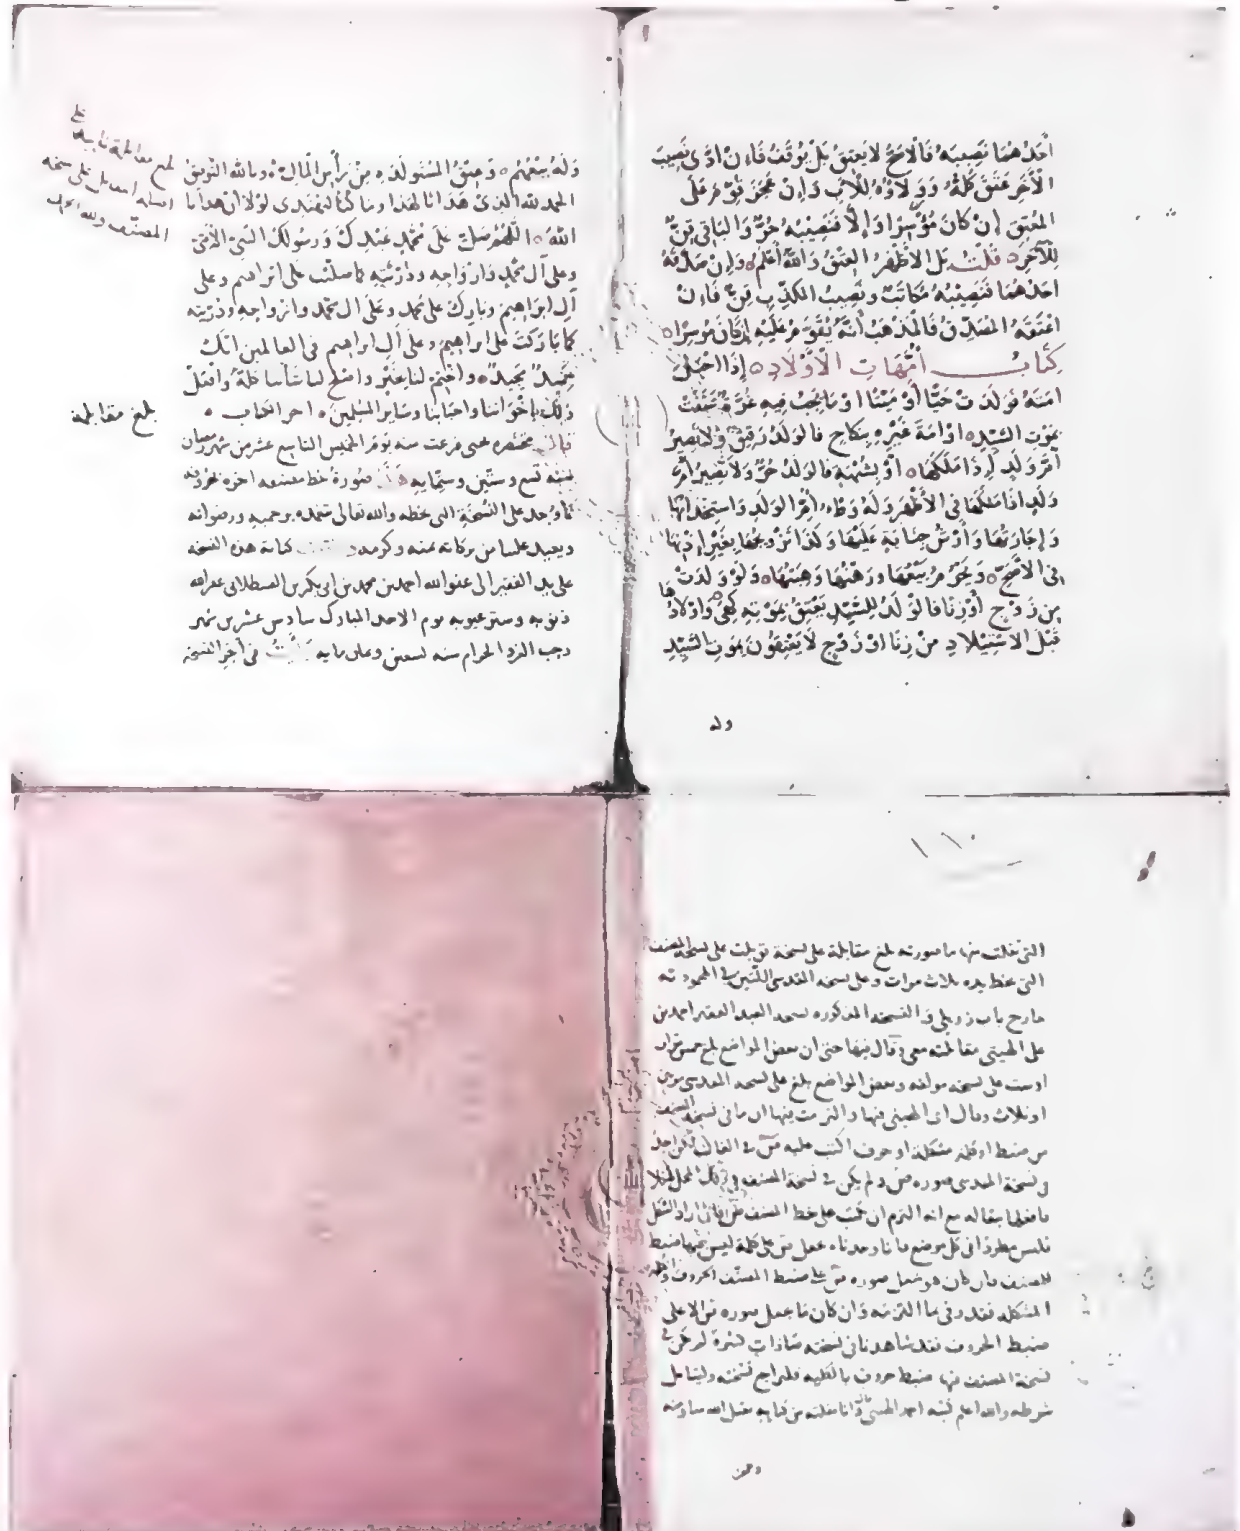 أَحَدُهُمَا نَصِيبَهُ فَالْأَصَحُّ لَا يَعْتِقُ بَلْ يُوقَفُ فَإِنْ أَدَّى نَصِيبَ
الْآخَرِ عَتَقَ كُلُّهُ وَوَلَاؤُهُ لِلْأَبِ وَإِنْ عَجَزَ قُوِّمَ عَلَى
المُعْتِقِ إِنْ كَانَ مُوسِرًا وَإِلَّا فَنَصِيبُهُ حُرٌّ وَالبَاقِي قِنٌّ
لِلْآخَرِ قُلْتُ بَلِ الْأَظْهَرُ العِتْقُ وَاللهُ أَعْلَمُ وَإِنْ صَدَّقَهُ
أحَدُهُمَا فَنَصِيبُهُ مُكَاتَبٌ وَنَصِيبُ المُكَذِّبِ قِنٌّ فَإِنْ
أَعْتَقَهُ المُصَدِّقُ فَالمَذْهَبُ أَنَّهُ يُقَوَّمُ عَلَيْهِ إِنْ كَانَ مُوسِرًا
كِتَابُ أُمَّهَاتِ الْأَوْلَادِ إِذَا أَحْبَلَ
أَمَتَهُ فَوَلَدَتْ حَيًّا أَوْ مَيِّتًا أَوْ مَا يَجِبُ فِيهِ غُرَّةٌ عَتَقَتْ
بِمَوْتِ السَّيِّدِ أَوْ أَمَةَ غَيْرِهِ بِنِكَاحٍ فَالوَلَدُ رَقِيقٌ وَلَا تَصِيرُ
أُمَّ وَلَدٍ إِذَا مَلَكَهَا أَوْ بِشُبْهَةٍ فَالوَلَدُ حُرٌّ وَلَا تَصِيرُ أُمَّ
وَلَدٍ إِذَا مَلَكَهَا فِي الْأَظْهَرِ وَلَهُ وَطْءُ أُمِّ الوَلَدِ وَاسْتِخْدَامُهَا
وَإِجَارَتُهَا وَأَرْشُ جِنَايَةٍ عَلَيْهَا وَكَذَا تَزْوِيجُهَا بِغَيْرِ إِذْنِهَا
فِي الْأَصَحِّ وَيَحْرُمُ بَيْعُهَا وَرَهْنُهَا وَهِبَتُهَا وَلَوْ وَلَدَتْ
مِنْ زَوْجٍ أَوْ زِنًا فَالوَلَدُ لِلسَّيِّدِ يَعْتِقُ بِمَوْتِهِ كَهِيَ وَأَوْلَادُهَا
قَبْلَ الاسْتِيلَادِ مِنْ زِنًا أَوْ زَوْجٍ لَا يَعْتِقُونَ بِمَوْتِ السَّيِّدِ
وله
وَلَهُ بَيْعُهُمْ وَعِتْقُ المُسْتَوْلَدَةِ مِنْ رَأْسِ المَالِ وَبِاللهِ التَّوْفِيقُ
الحمد لله الذي هَدَانَا لهذا وما كُنَّا لنهتدي لَوْلَا أَنْ هَدَانَا
اللهُ اللَّهُمَّ صَلِّ عَلَى مُحَمَّدٍ عَبْدِكَ وَرَسُولِكَ النَّبِيِّ الْأُمِّيِّ
وعلى آل محمَّدٍ وأزواجه وذُرِّيَّتِهِ كما صلَّيت على ابراهيم وعلى
آلِ ابراهيم وبارِك على محمد وعلى ال محمد وازواجه وذريته
كما بَارَكتَ على ابراهيمَ وعلى آلِ ابراهيم في العالمين انك
حميدٌ مجيدٌ واختِم لنا بخيرٍ واصْلِح لنا شأننا كلَّهُ وافعَلْ
ذلك بإخْوَاننا واحبابنا وسَايرِ المُسْلِمينَ اخر الكتاب
قال مختصره فرغت منه يوم الخميس التاسع عشر من شهر رمضان
سنة تسع وستين وستمايه صُورةُ خط مصنفه اخره بحروفه
كما وُجد على النُّسْخَةِ التى بخطه والله تعالى تغمده برحمته ورضوانه
ويعيد علينا من بركاته بمنه وكرمه كتابة هذه النسخه
على يد الفقير الى عفو الله احمد بن محمد بن ابى بكر بن القسطلانى غفر الله
ذنوبه وستر عيوبه يوم الاحد المبارك سادس عشرين شهر
رجب الفرد الحرام سنه تسعين وثمان مايه في آخر النسخه
بلغ مقابلة ثانية على
اصله المقابل على نسخه
المصنف ولله الحمد
بلغ مقابلة
١١٠
التى نقلت منها ما صورته بلغ مقابلة على نسخة قوبلت على نسخة المصنف
التى بخط يده ثلاث مرات وعلى نسخه المقدسى اللتين في المحموديه
خارج باب زويله النسخه المذكوره العبد الفقير احمد بن
على الهيتمى مقابلته معى وقال فيها حتى ان بعض المواضع بلغ خمس مرار
اوست على نسخه مولفه وبعض المواضع بلغ على نسخه المقدسى مرتين
اوثلاث وقال اى الهيتمى فيها والتزمت فيها ان ما في نسخه المصنف
من ضبط او كلمة مشكلة او حرف اكتب عليه
في نسخة المقدسى صوره ولم يكن في نسخة المصنف
مع انه التزم ان يكتب على خط المصنف
في كل موضع فانا وجدناه على كلمة ليس فيها ضبط
للمصنف فان كان هو يجعل صوره على ضبط المصنف الحروف
المشكله فقد وفى بما التزمه وان كان ما جعل صوره الا على
ضبط الحروف فقد شاهدنا في نسخته
نسخة المصنف فيها ضبط حروف بالكليه فليراجع نسخته وليتامل
شرطه والله اعلم كتبه احمد وانا نقلته من كتابه